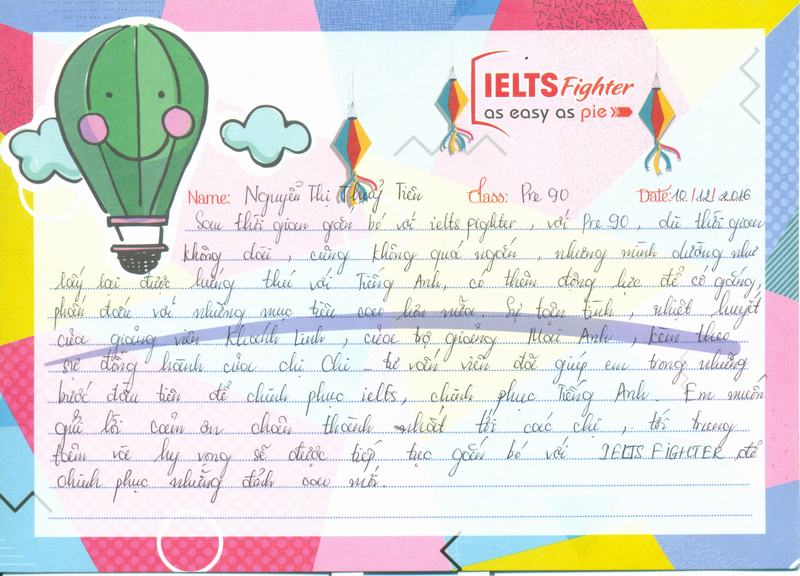 IELTS Fighter
as easy as pie
Name: Nguyễn Thị Thuỷ Tiên Class: Pre 90 Date: 10/12/2016
Sau thời gian gắn bó với ielts fighter, với Pre 90, dù thời gian
không dài, cũng không quá ngắn, nhưng mình dường như
lấy lại được hứng thú với Tiếng Anh, có thêm động lực để cố gắng,
phấn đấu với những mục tiêu cao hơn nữa. Sự tận tình, nhiệt huyết
của giảng viên Khánh Linh, của trợ giảng Mai Anh, kèm theo
sự đồng hành của chị Chi - tư vấn viên đã giúp em trong những
bước đầu tiên để chinh phục ielts, chinh phục Tiếng Anh. Em muốn
gửi lời cảm ơn chân thành nhất tới các chị, tới trung
tâm và hy vọng sẽ được tiếp tục gắn bó với IELTS FIGHTER để
chinh phục những đỉnh cao mới.